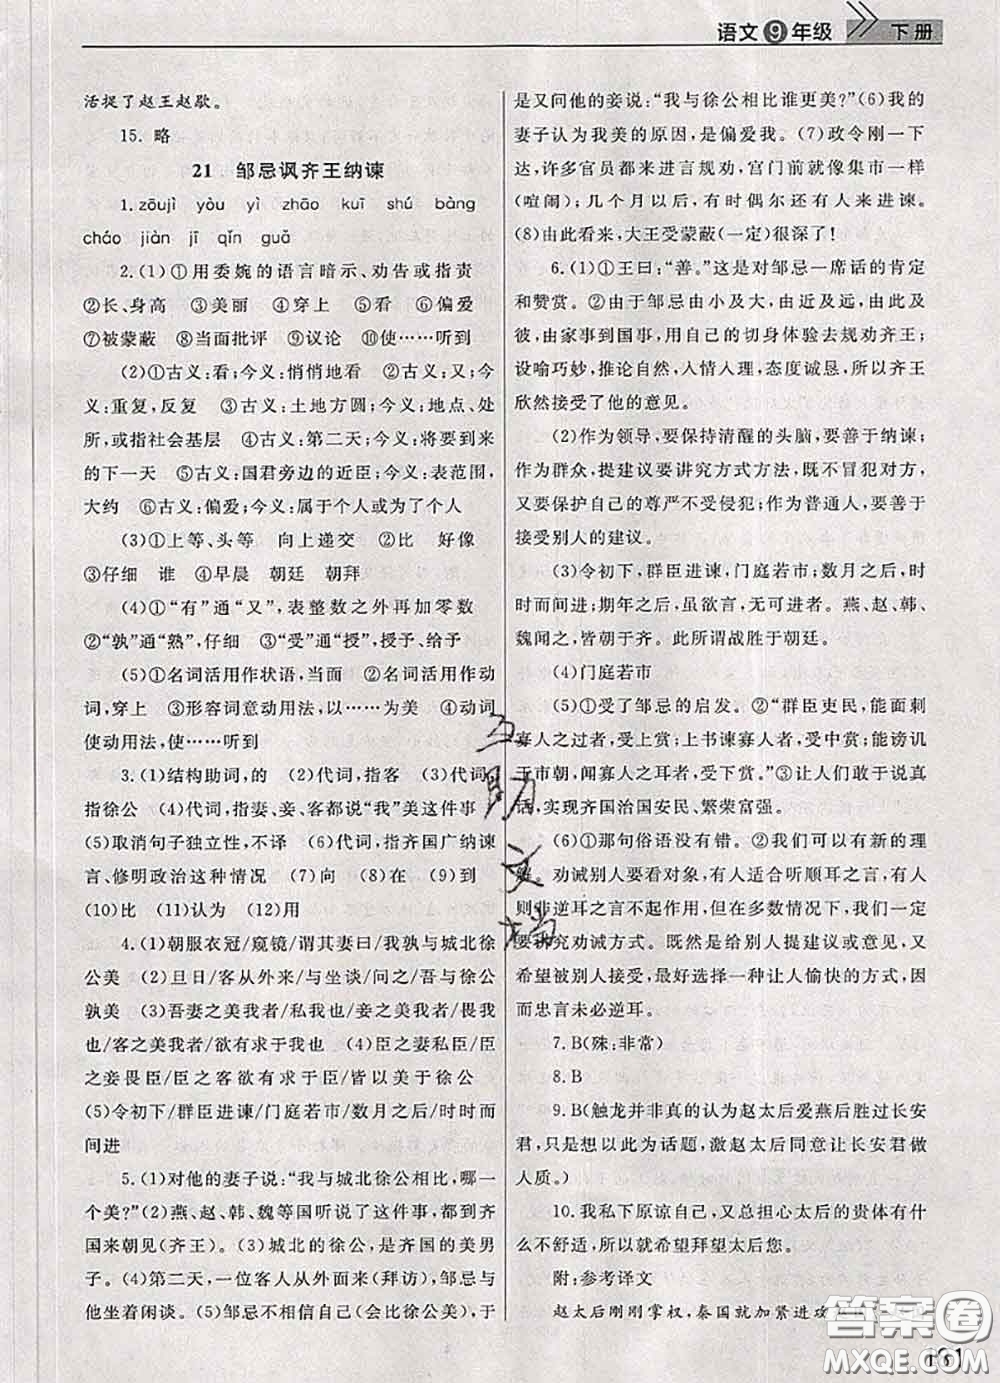 语文9年级 下册
活捉了赵王赵歇。
15. 略
21 邹忌讽齐王纳谏
1. zōujì yòu yì zhāo kuī shú bàng
cháo jiàn jī qǐn guǎ
2.(1)①用委婉的语言暗示、劝告或指责
②长、身高 ③美丽 ④穿上 ⑤看 ⑥偏爱
⑦被蒙蔽 ⑧当面批评 ⑨议论 ⑩使……听到
(2)①古义:看;今义:悄悄地看 ②古义:又;今
义:重复,反复 ③古义:土地方圆;今义:地点、处
所,或指社会基层 ④古义:第二天;今义:将要到来
的下一天 ⑤古义:国君旁边的近臣;今义:表范围,
大约 ⑥古义:偏爱;今义:属于个人或为了个人
(3)①上等、头等 向上递交 ②比 好像
③仔细 谁 ④早晨 朝廷 朝拜
(4)①“有”通“又”,表整数之外再加零数
②“孰”通“熟”,仔细 ③“受”通“授”,授予、给予
(5)①名词活用作状语,当面 ②名词活用作动
词,穿上 ③形容词意动用法,以……为美 ④动词
使动用法,使……听到
3.(1)结构助词,的 (2)代词,指客 (3)代词,
指徐公 (4)代词,指妻、妾、客都说“我”美这件事
(5)取消句子独立性,不译 (6)代词,指齐国广纳谏
言、修明政治这种情况 (7)向 (8)在 (9)到
(10)比 (11)认为 (12)用
4.(1)朝服衣冠/窥镜/谓其妻曰/我孰与城北徐
公美 (2)旦日/客从外来/与坐谈/问之/吾与徐公
孰美 (3)吾妻之美我者/私我也/妾之美我者/畏我
也/客之美我者/欲有求于我也 (4)臣之妻私臣/臣
之妾畏臣/臣之客欲有求于臣/皆以美于徐公
(5)令初下/群臣进谏/门庭若市/数月之后/时时而
间进
5.(1)对他的妻子说:“我与城北徐公相比,哪一
个美?”(2)燕、赵、韩、魏等国听说了这件事,都到齐
国来朝见(齐王)。(3)城北的徐公,是齐国的美男
子。(4)第二天,一位客人从外面来(拜访),邹忌与
他坐着闲谈。(5)邹忌不相信自己(会比徐公美),于
是又问他的妾说:“我与徐公相比谁更美?”(6)我的
妻子认为我美的原因,是偏爱我。(7)政令刚一下
达,许多官员都来进言规劝,宫门前就像集市一样
(喧闹);几个月以后,有时偶尔还有人来进谏。
(8)由此看来,大王受蒙蔽(一定)很深了!
6.(1)①王曰:“善。”这是对邹忌一席话的肯定
和赞赏。②由于邹忌由小及大,由近及远,由此及
彼,由家事到国事,用自己的切身体验去规劝齐王,
设喻巧妙,推论自然,入情入理,态度诚恳,所以齐王
欣然接受了他的意见。
(2)作为领导,要保持清醒的头脑,要善于纳谏;
作为群众,提建议要讲究方式方法,既不冒犯对方,
又要保护自己的尊严不受侵犯;作为普通人,要善于
接受别人的建议。
(3)令初下,群臣进谏,门庭若市;数月之后,时
时而间进;期年之后,虽欲言,无可进者。燕、赵、韩、
魏闻之,皆朝于齐。此所谓战胜于朝廷。
(4)门庭若市
(5)①受了邹忌的启发。②“群臣吏民,能面刺
寡人之过者,受上赏;上书谏寡人者,受中赏;能谤讥
于市朝,闻寡人之耳者,受下赏。”③让人们敢于说真
话,实现齐国治国安民、繁荣富强。
(6)①那句俗语没有错。②我们可以有新的理
解。劝诫别人要看对象,有人适合听顺耳之言,有人
则非逆耳之言不起作用,但在多数情况下,我们大可
要讲究劝诫方式。既然是给别人提建议或意见,又
希望被别人接受,最好选择一种让人愉快的方式,因
而忠言未必逆耳。
7. B(殊:非常)
8. B
9. B(触龙并非真的认为赵太后爱燕后胜过长安
君,只是想以此为话题,激赵太后同意让长安君做
人质。)
10. 我私下原谅自己,又总担心太后的贵体有什
么不舒适,所以就希望拜望太后您。
附:参考译文
赵太后刚刚掌权,秦国就加紧进攻
答案圈
MXQE.COM